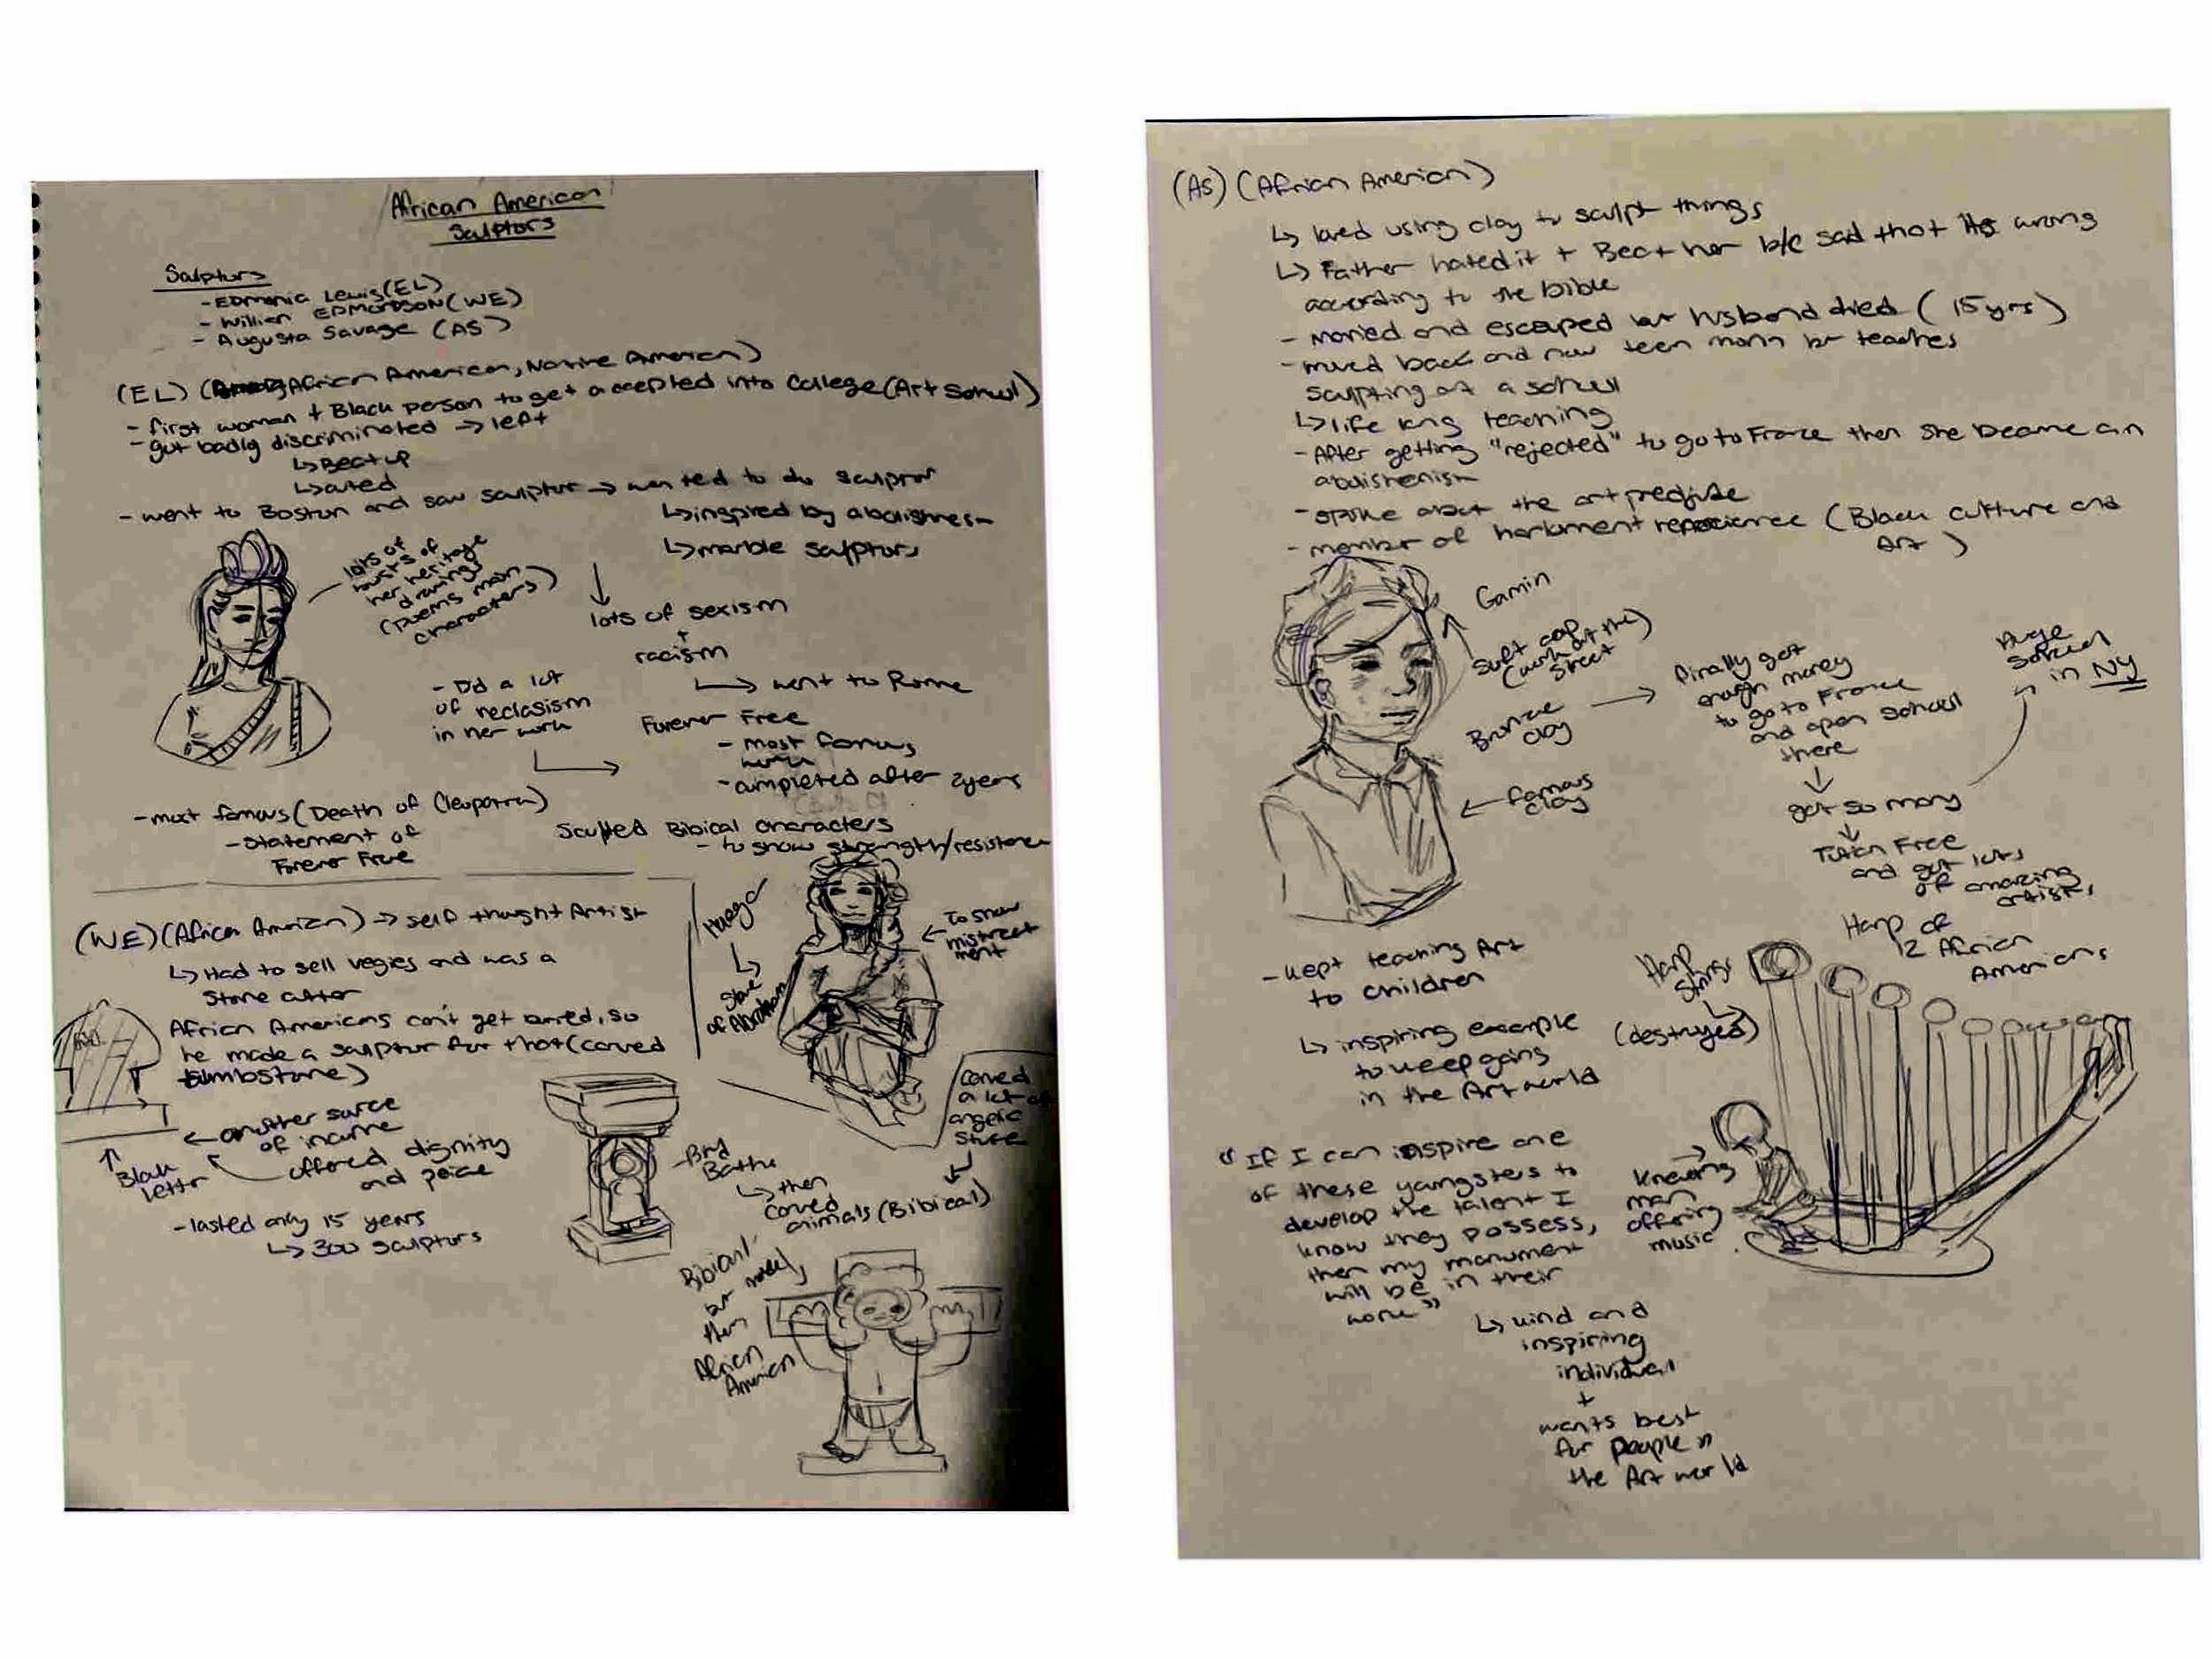 African American
Sculptors
Sculpturs
- EDMONIA LEWIS (EL)
- Willian EDMONDSON (WE)
- Augusta Savage (AS)
(EL) (African American, Native American)
- first woman + Black person to get accepted into College (Art School)
- got badly discriminated → left
↳ Beat up
- went to Boston and saw sculptur → wanted to do sculptur
↳ inspired by
↳ marble sculpturs
lots of
busts of
her heritage
drawings
(poems main
characters)
↓
lots of sexism
+
racism
↳ went to Rome
- Did a lot
of neclasism
in her work
Forever Free
- most famous
- completed after 2years
- most famous (Death of Cleopatra)
- Statement of
Forever Free
Sculpted Bibical characters
- to show strength/
(WE) (African American) → self thought Artist
↳ Had to sell vegies and was a
Stone cutter
African Americans can't get burred, so
he made a sculptur for that (carved
tumbstone)
← another surce
of income
offered dignity
and peice
↑
Black
letter
- lasted only 15 years
↳ 300 sculpturs
Haga
↓
Slave
of Abraham
← To show
mistreat
ment
carved
a lot of
angelic
Stone
- Bird
Bathe
↳ then
carved
animals (Bibical)
but
then
African
American
(AS) (African American)
↳ loved using clay to sculpt things
↳ Father hated it + Beat her b/c said that its wrong
according to the bible
- married and escaped but husband died (15 yrs)
- moved back and now teen mom but teaches
sculpting at a school
↳ life long teaching
- After getting "rejected" to go to France then she became an
- spoke about the art
- member of (Black culture and
Art)
Gamin
Soft cap
(work at the)
street
Bronze
clay
← famous
clay
→ finally got
enough money
to go to France
and open school
there
↓
got so many
↓
Tution Free
and got lots
of amazing
artists
Huge
School
in NY
- kept teaching Art
to children
↳ inspiring example
to keep going
in the Art world
Harp
strings
(destroyed)
Harp of
12 African
Americans
"If I can inspire one
of these youngsters to
develop the talent I
know they possess,
then my monument
will be in their
work"
man
offering
music
↳ kind and
inspiring
individual
+
wants best
for people in
the Art world